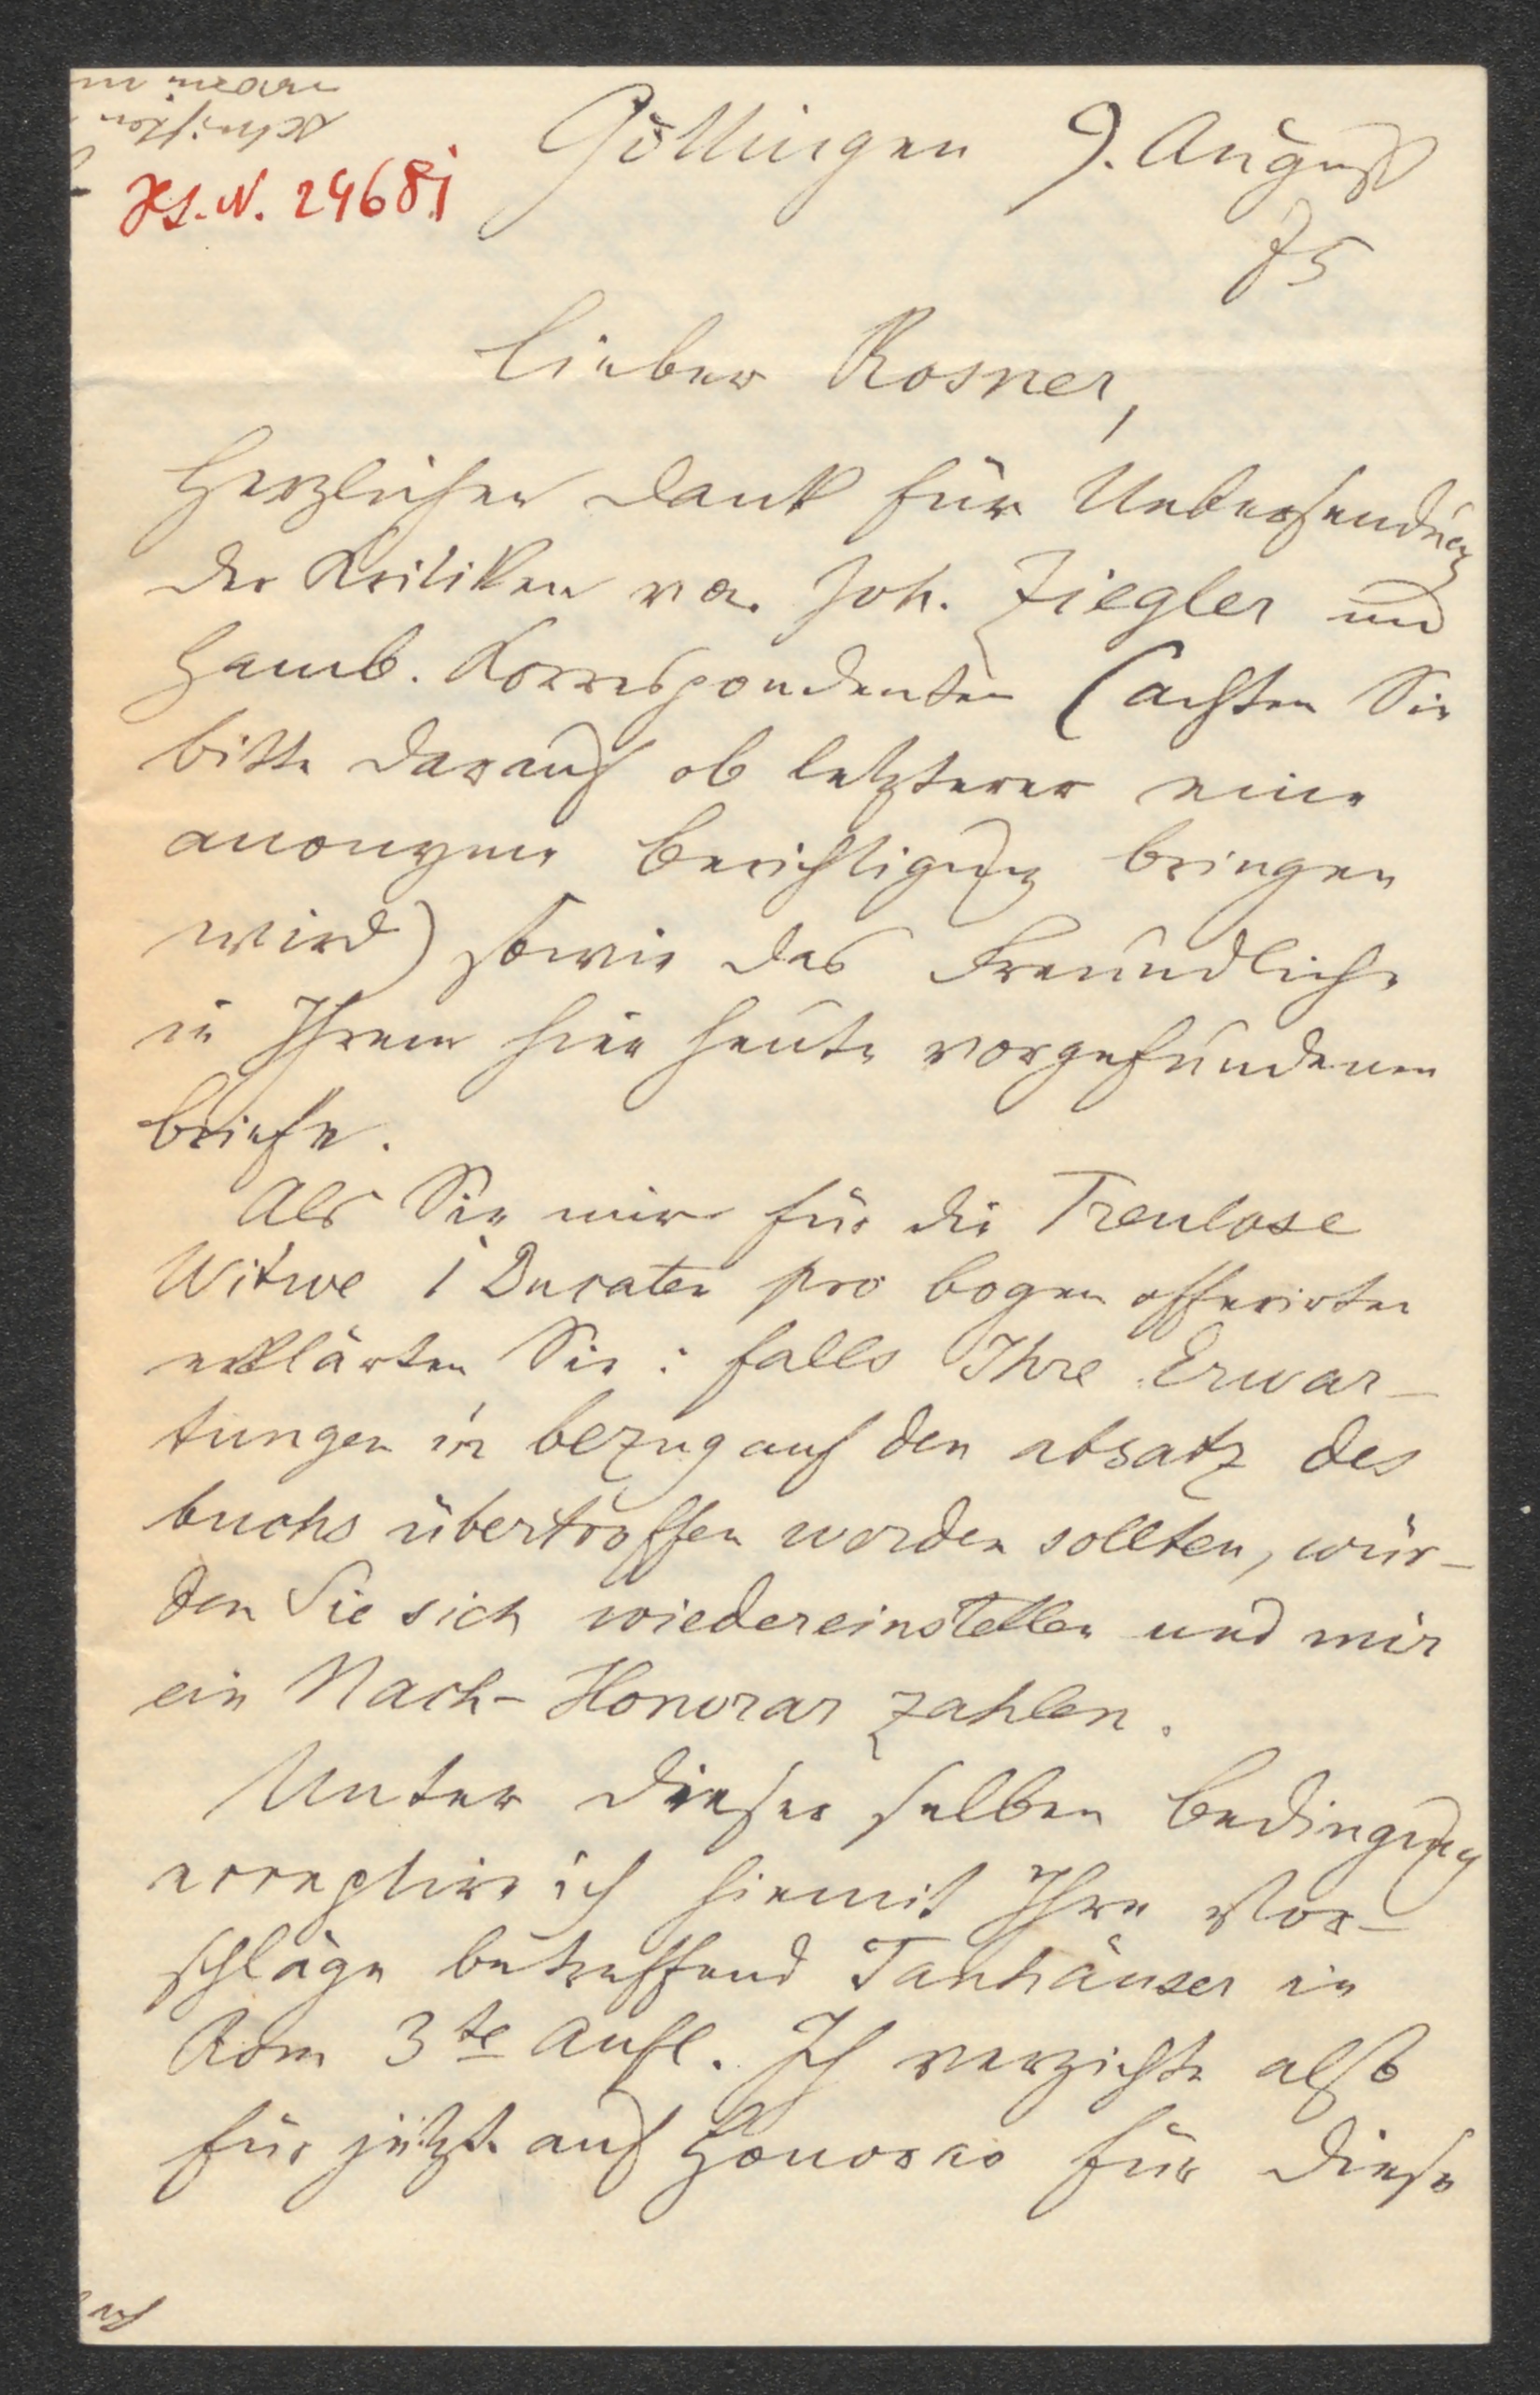 Schriften
Hs. N. 24681
Göttingen 9. August
75
Lieber Rosner,
Herzlichen Dank für Uebersendung
der Kritiken von Joh. Ziegler und
Hamb. Korrespondenten (achten Sie
bitte darauf ob letzterer eine
anonyme Berichtigung bringen
wird) sowie das Freundliche
in Ihrem hier heute vorgefundenen
Briefe.
Als Sie mir für die Treulose
Witwe 1 Ducaten pro bogen offerirten
erklärten Sie: falls Ihre Erwar-
tungen in bezug auf den absatz des
buchs übertroffen werden sollten, wür-
den Sie sich wiedereinstellen und mir
ein Nach-Honorar zahlen.
Unter dieser selben Bedingung
acceptire ich hiemit Ihre Vor-
schläge betreffend Tanhäuser in
Rom 3te Aufl. Ich verzichte also
für jetzt auf Honorar für diese